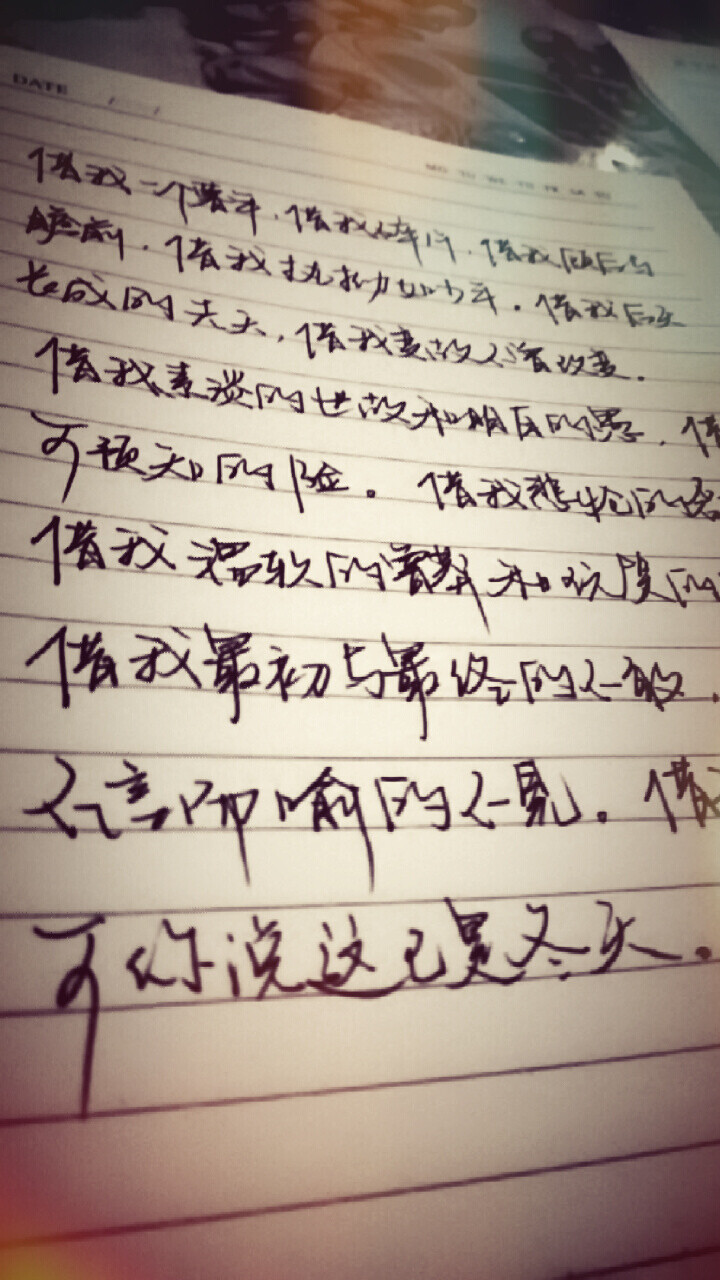 DATE
MO TU WE TH FR SA SU
借我一个暮年,借我碎片,借我顾后与
瞻前,借我执拗如少年。借我后天
长成的先天,借我变故不曾改变。
借我素淡的世故和明白的愚,借
可预知的险。借我悲怆的
借我温软的鲁莽和玩笑的
借我最初与最终的不敢,
不言即喻的不见。借
可你说这已是冬天。